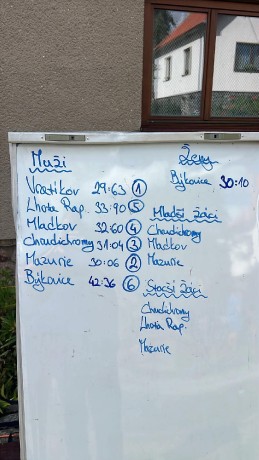 Muži
Vratikov 29:63 1
Lhota Rap. 33:90 5
Mladkov 32:60 4
Chrudichromy 31:04 3
Mazurie 30:06 2
Býkovice 42:36 6
Ženy
Býkovice 30:10
Mladší žáci
Chrudichromy
Mladkov
Mazurie
Starší žáci
Chrudichromy
Lhota Rap.
Mazurie